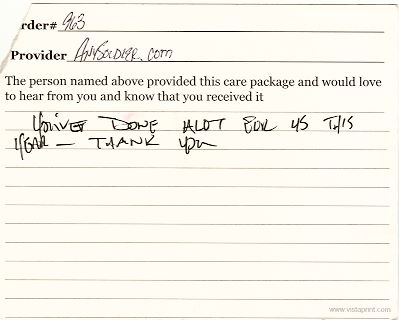 rder# 963
Provider AnySoldier.com
The person named above provided this care package and would love
to hear from you and know that you received it
You've DONE ALOT FOR US THIS
YEAR — THANK YOU
www.vistaprint.com